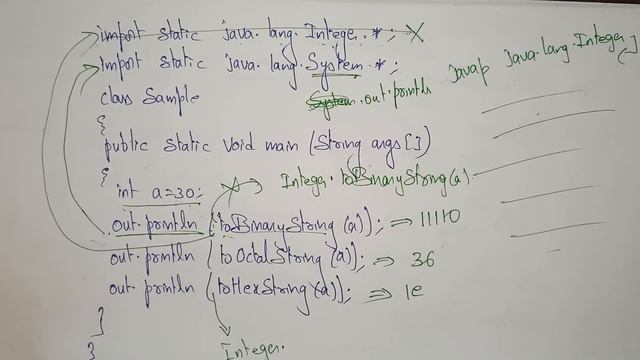 import static java.lang.Integer.*; X
import static java.lang.System.*;
javap java.lang.Integer
class Sample
System.out.println
{
public static void main (String args[])
{
int a=30;
X Integer.toBinaryString(a)
out.println (toBinaryString (a)); ⇒ 11110
out.println (toOctalString (a)); ⇒ 36
out.println (toHexString (a)); ⇒ 1e
}
}
Integer.